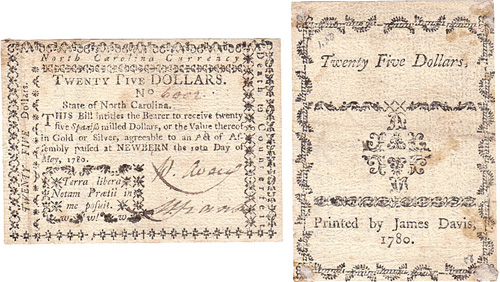 North Carolina Currency
TWENTY FIVE DOLLARS.
No 6001
State of North Carolina.
THIS Bill intitles the Bearer to receive twenty
five Spanish milled Dollars, or the Value thereof
in Gold or Silver, agreeable to an Act of As-
sembly passed at NEWBERN the 10th Day of
May, 1780.
Terra libera
Notam Prætii in
me posuit.
TWENTY FIVE Dollars.
Death to Counterfeit
Twenty Five Dollars,
Printed by James Davis,
1780.